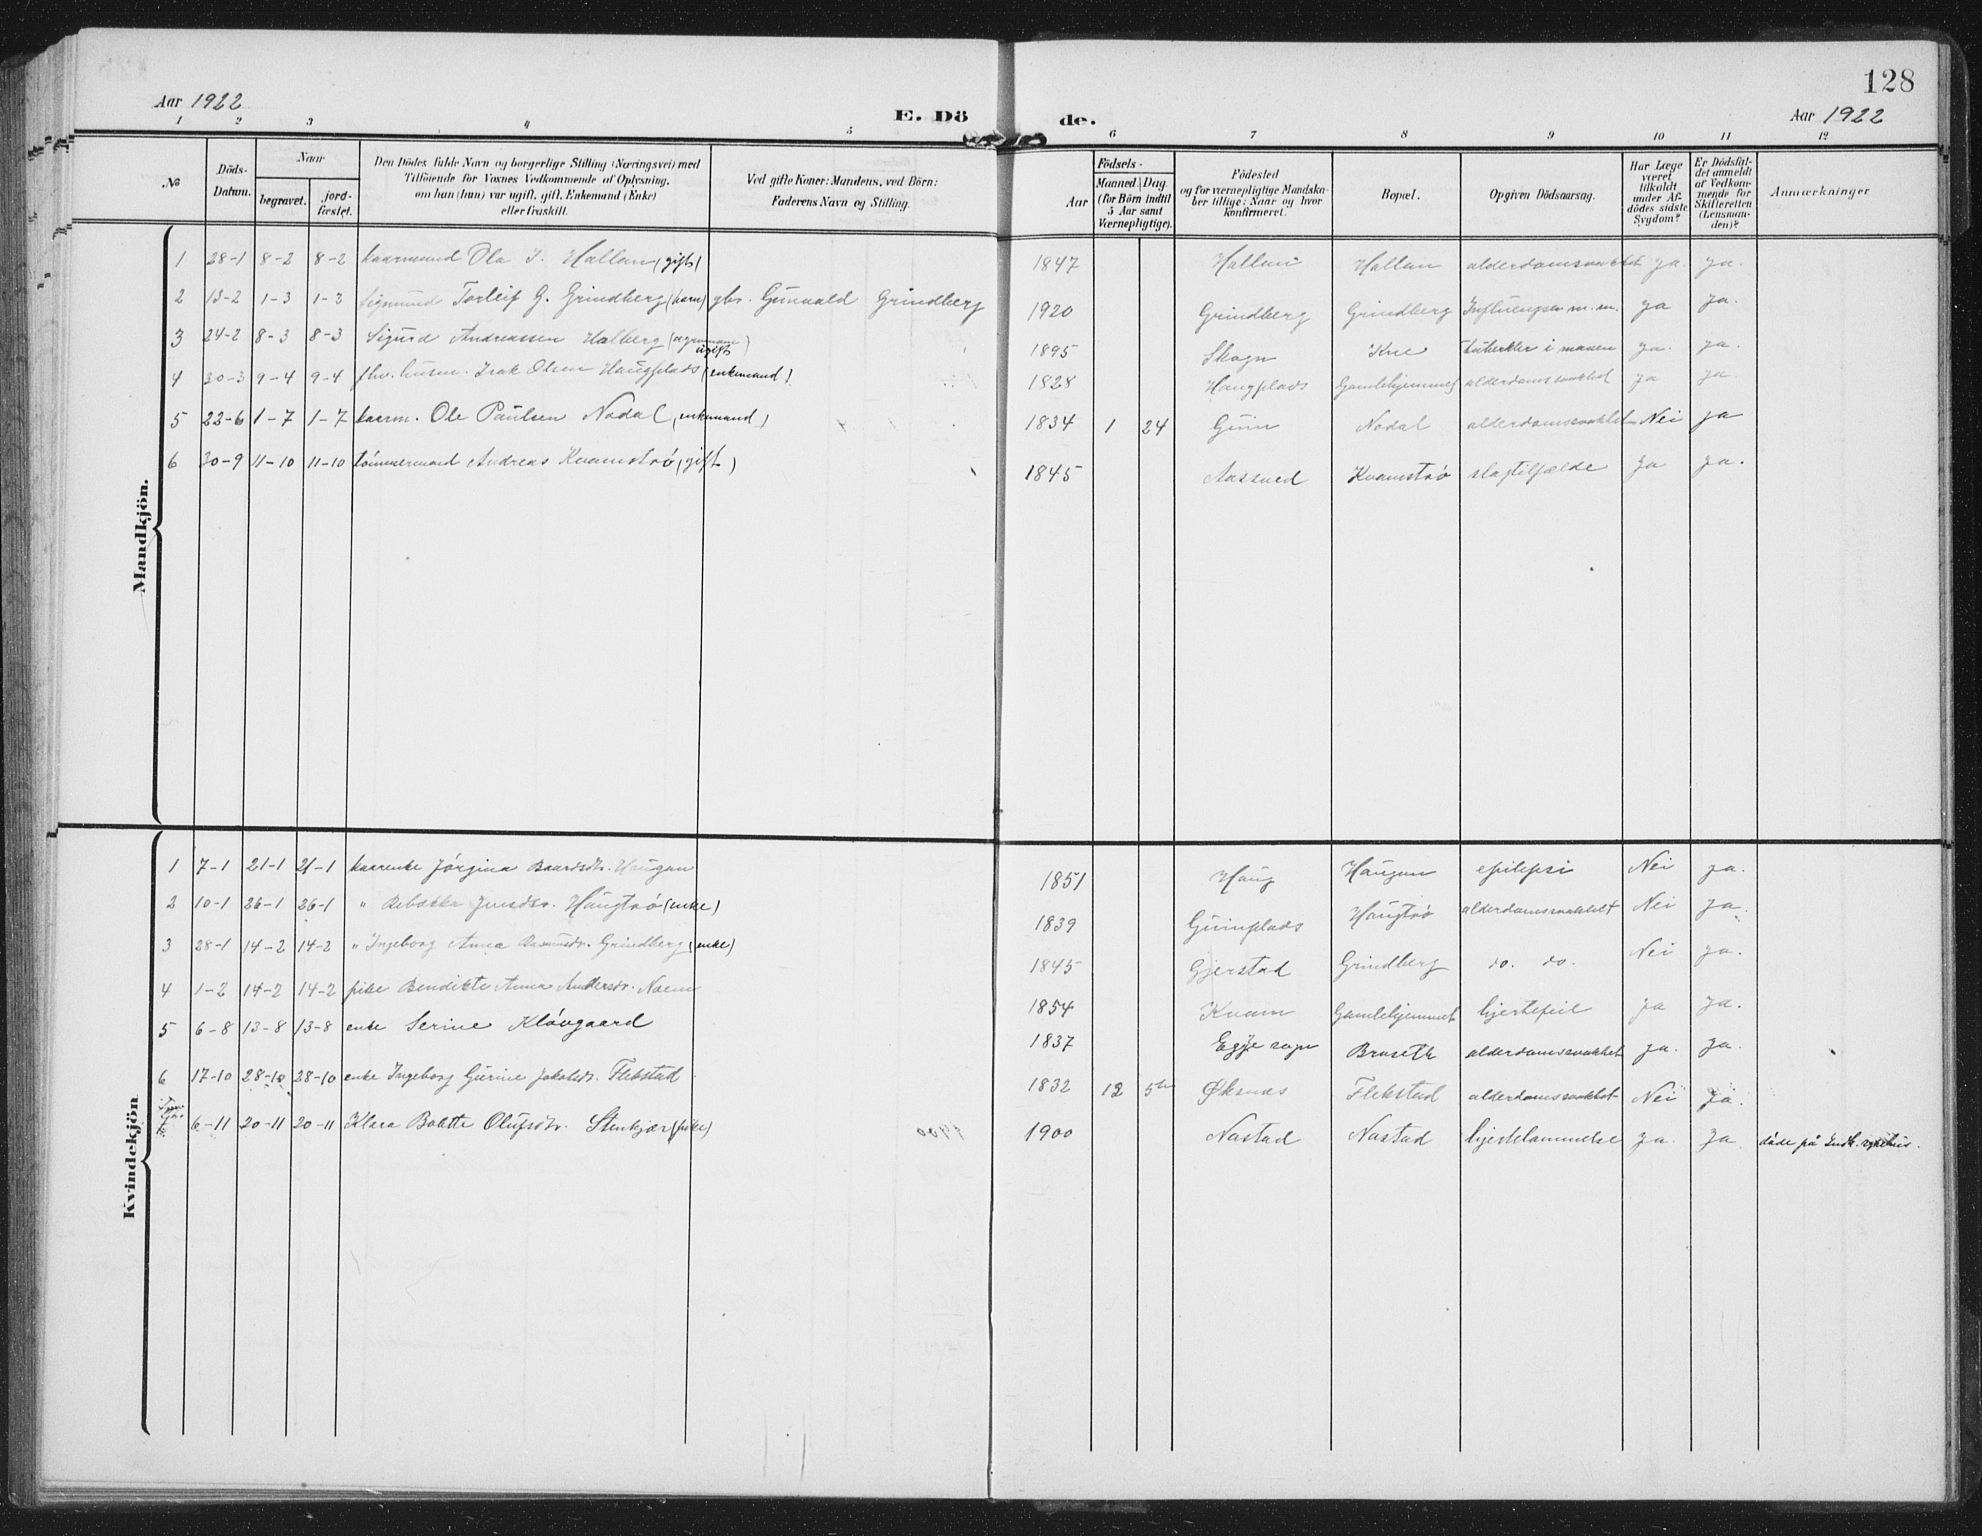 128
Aar 1922
E. Dö
de.
Aar 1922
1 2 3 4 5 6 7 8 9 10 11 12
№
Döds-
Datum.
Naar
begravet.
jord-
fæstet.
Den Dödes fulde Navn og borgerlige Stilling (Næringsvei) med
Tilföiende for Voxnes Vedkommende af Oplysning,
om han (hun) var ugift, gift, Enkemand (Enke)
eller fraskilt.
Ved gifte Koner: Mandens, ved Börn:
Faderens Navn og Stilling.
Födsels-
Aar
Maaned. Dag.
(for Börn indtil
5 Aar samt
Værnepligtige).
Födested
og for værnepligtige Mandska-
ber tillige: Naar og hvor
konfirmeret.
Bopæl.
Opgiven Dödsaarsag.
Har Læge
været
tilkaldt
under Af-
dödes sidste
Sygdom?
Er Dödsfal-
det anmeldt
af Vedkom-
mende for
Skifteretten
(Lensman-
den)?
Anmærkninger
Mandkjön.
1 28-1 8-2 8-2 kaarmand Ola J. Hallan (gift) 1847 Hallan Hallan alderdomssvakhet ja. ja.
2 13-2 1-3 1-3 Sigmund Torleif G. Grindberg (barn) gbr. Gunvald Grindberg 1920 Grindberg Grindberg Influenza m.m. ja ja.
3 24-2 8-3 8-3 Sigurd Andreassen Halberg ugift 1895 Skogn i maven ja. ja.
4 30-3 9-4 9-4 fhv. husm. Isak Olsen Haugplads (enkemand) 1828 Haugplads Gamlehjemmet alderdomssvakhet ja ja.
5 22-6 1-7 1-7 kaarm. Ole Paulsen Nodal (enkemand) 1834 1 24 Guin Nodal alderdomssvakhet Nei ja
6 30-9 11-10 11-10 tömmermand Andreas Kvamstrø (gift) 1845 Aassved Kvamstrø slagtilfælde ja ja.
Kvindekjön
1 7-1 21-1 21-1 kaarenke Jørgina Baardsdtr. Haugan 1851 Haug Haugan epilepsi Nei ja.
2 10-1 26-1 26-1 " Rebekka Haugtrø (enke) 1839 Guinplads Haugtrø alderdomssvakhet Nei ja.
3 28-1 14-2 14-2 " Ingeborg Anna Rasmusdr. Grindberg (enke) 1845 Gjerstad Grindberg do. do. Nei ja.
4 1-2 14-2 14-2 pike Bendikte Anna Andersdr. Noem 1854 Kvam Gamlehjemmet hjertefeil ja ja.
5 6-8 13-8 13-8 enke Serine Kløvgaard 1837 Egge sogn Bruseth alderdomssvakhet ja. ja.
6 17-10 28-10 28-10 enke Ingeborg Gurine Jakobsdr. Flekstad 1832 12 5te Øksnes Flekstad alderdomssvakhet Nei ja.
6-11 20-11 20-11 Klara Bolette Olufsdtr. Stenkjær (pike) 1900 Nastad Nastad hjertelammelse ja. ja døde på Indh. sykehus.